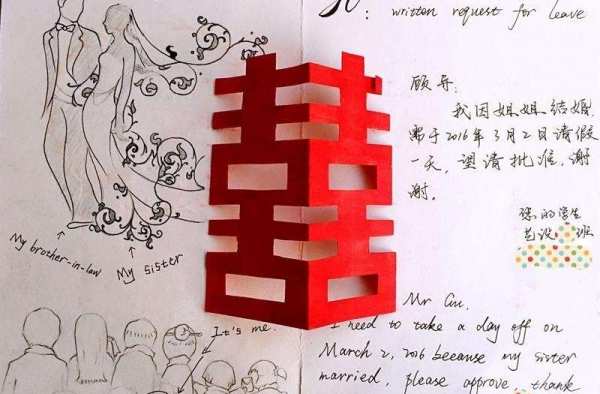 My brother-in-law
My sister
It's me.
囍
: written request for leave
顾导:
我因姐姐结婚,
需于2016年3月2日请假
一天,望请批准,谢
谢。
您的学生
艺设 班
Mr Gu,
I need to take a day off on
March 2, 2016 because my sister
married, please approve, thank